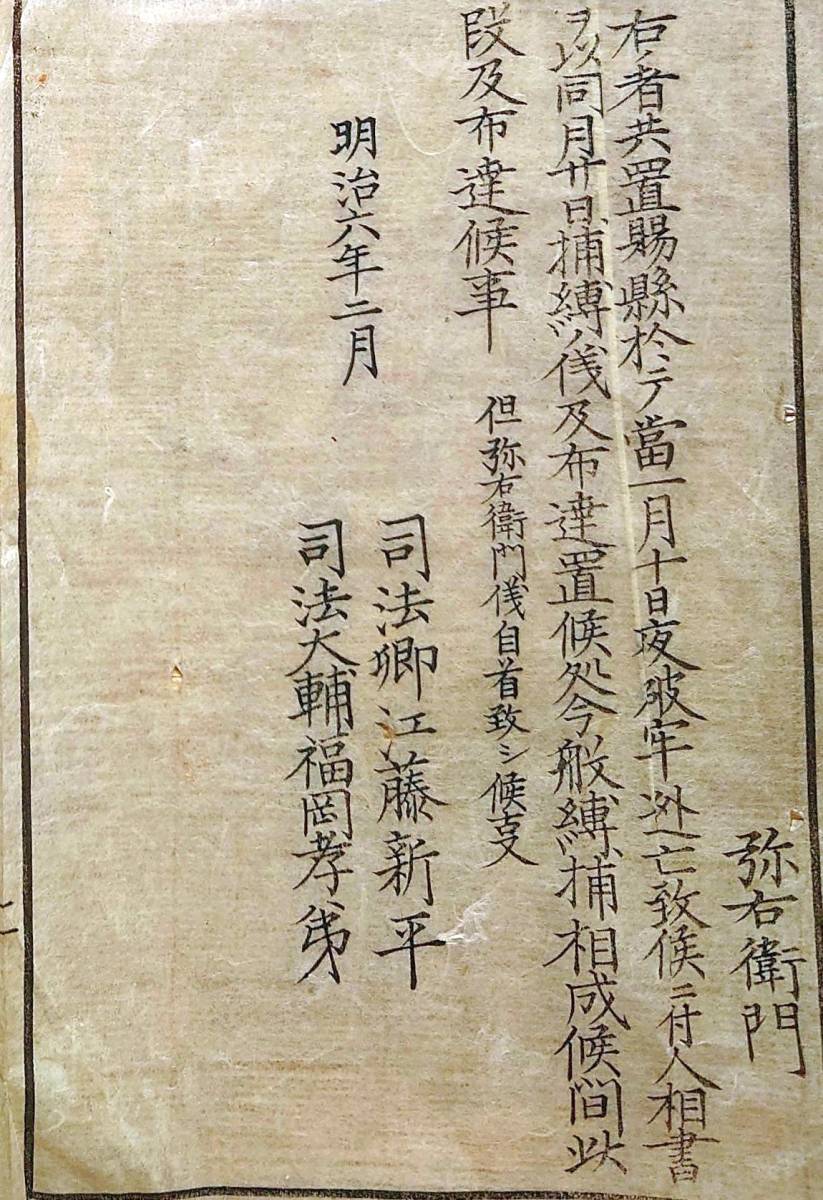 弥右衛門
右ノ者共置賜縣於ニテ當一月十日夜破牢迯亡致候ニ付人相書
ヲ以同月廿日捕縛ノ儀及布達置候処今般縛捕相成候間此
段及布達候事
但弥右衛門儀自首致シ候叓
明治六年二月
司法卿江藤新平
司法大輔福岡孝弟